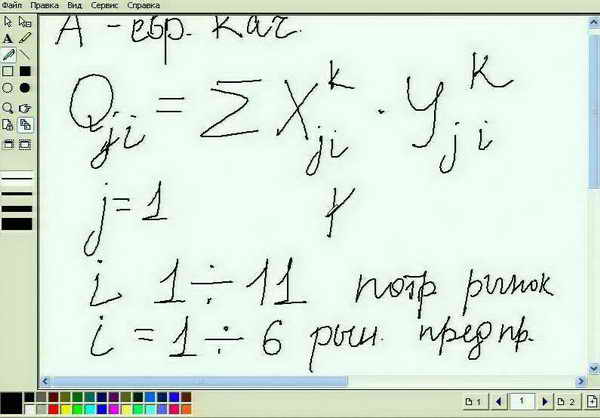 Файл Правка Вид Сервис Справка
А - евр. кач.
Q_{ji} = Σ X_{ji}^{k} · y_{ji}^{k}
j = 1
i 1 ÷ 11 потр рынок
i = 1 ÷ 6 рын. предпр.
1 1 2